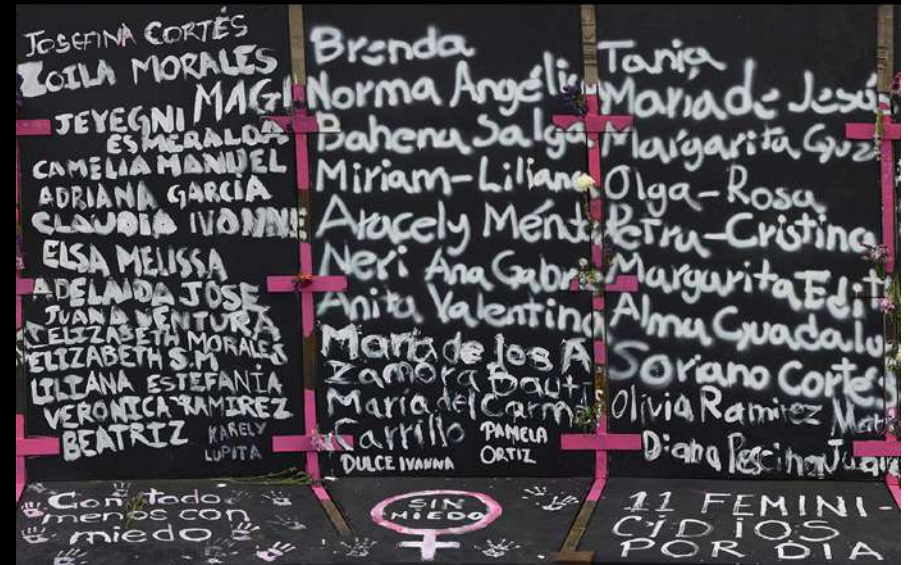 JOSEFINA CORTÉS
ZOILA MORALES
MAGI
JEYEGNI
ESMERALDA
CAMELIA MANUEL
ADRIANA GARCÍA
CLAUDIA IVONNE
ELSA MELISSA
ADELAIDA JOSE
JUANA VENTURA
ELIZABETH MORALES
ELIZABETH S.M
LILIANA ESTEFANÍA
VERONICA RAMIREZ
BEATRIZ
KARELY
LUPITA
Brenda
Norma Angélic
Bahena Salga
Miriam-Liliana
Aracely Ménd
Neri Ana Gabr
Anita Valentina
María de los A
Zamora Bauti
María del Carm
Carrillo
PAMELA
ORTIZ
DULCE IVANNA
Tania
María de Jesús
Margarita Guz
Olga-Rosa
Petra-Cristina
Margarita Edit
Alma Guadalu
Soriano Cortés
Olivia Ramirez Mat
Diana Juan
Con todo
menos con
miedo
SIN
MIEDO
11 FEMINI-
CIDIOS
POR DIA